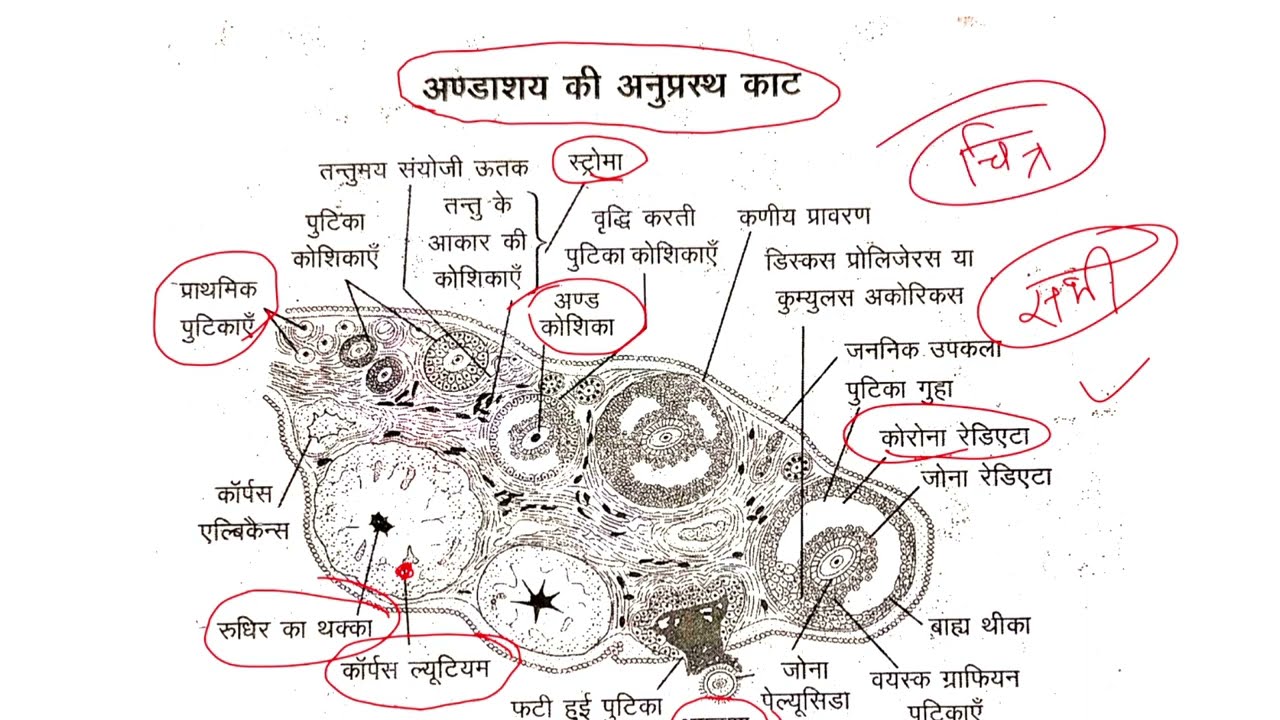 अण्डाशय की अनुप्रस्थ काट
चित्र
तन्तुमय संयोजी ऊतक
स्ट्रोमा
पुटिका
कोशिकाएँ
तन्तु के
आकार की
कोशिकाएँ
वृद्धि करती
पुटिका कोशिकाएँ
कणीय प्रावरण
डिस्कस प्रोलिजेरस या
कुम्युलस अकोरिकस
सभी
प्राथमिक
पुटिकाएँ
अण्ड
कोशिका
जननिक उपकला
पुटिका गुहा
कोरोना रेडिएटा
जोना रेडिएटा
कॉर्पस
एल्बिकैन्स
रुधिर का थक्का
कॉर्पस ल्यूटियम
बाह्य थीका
फटी हुई पुटिका
जोना
पेल्यूसिडा
वयस्क ग्राफियन
पुटिकाएँ